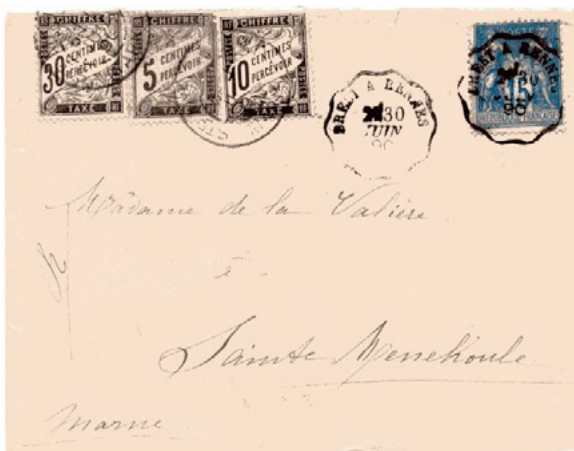 CHIFFRE
30 CENTIMES À PERCEVOIR
TAXE
CHIFFRE
5 CENTIMES À PERCEVOIR
TAXE
CHIFFRE
10 CENTIMES À PERCEVOIR
TAXE
BREST A RENNES
30
JUIN
POSTE
15
REPUBLIQUE FRANÇAISE
BREST A RENNES
30
Madame de la Valière
à
Sainte Menehoule
Marne